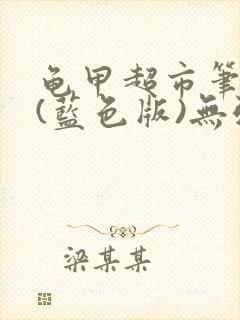 龟甲超市筆
(藍色版)無
梁某某